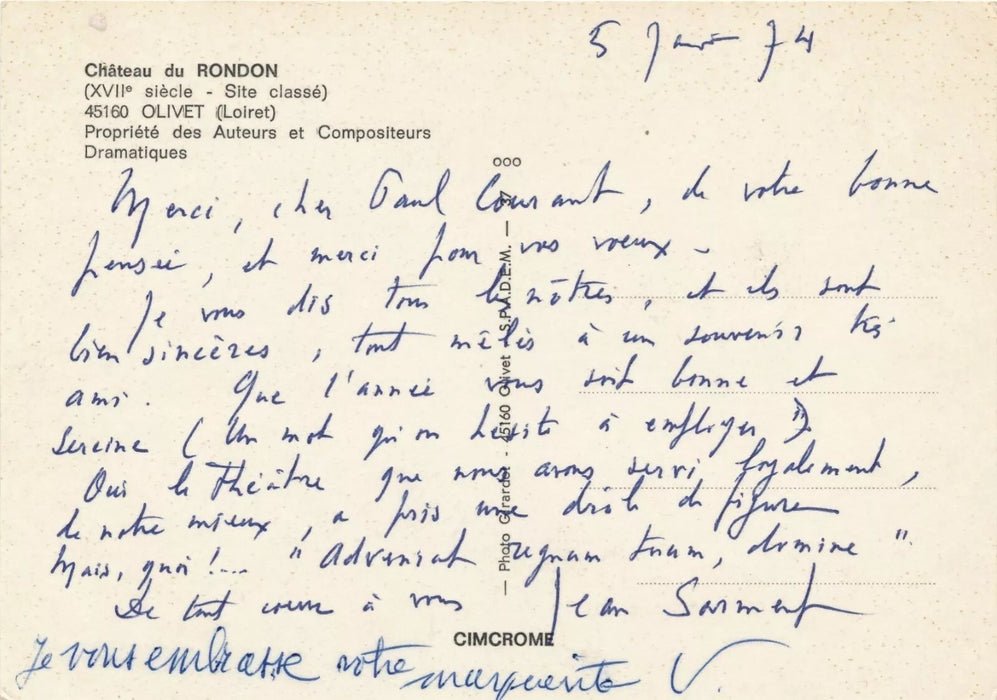 5 Janv 74
Château du RONDON
(XVIIe siècle - Site classé)
45160 OLIVET (Loiret)
Propriété des Auteurs et Compositeurs
Dramatiques
ooo
Merci, cher Paul Courant, de votre bonne
pensée, et merci pour vos voeux -
Je vous dis tous les nôtres, et ils sont
bien sincères, tout mêlés à un souvenir très
ami. Que l'année vous soit bonne et
sereine (Un mot qu'on hésite à employer !).
Oui le Théâtre que nous avons servi loyalement,
de notre mieux, a pris une drôle de figure
Mais, quoi !... "Adveniat regnum tuum, domine".
De tout coeur à vous Jean Sarment
Je vous embrasse votre marguerite V.
— Photo Girardot - 45160 Olivet - S.P.A.D.E.M. — 37
CIMCROME